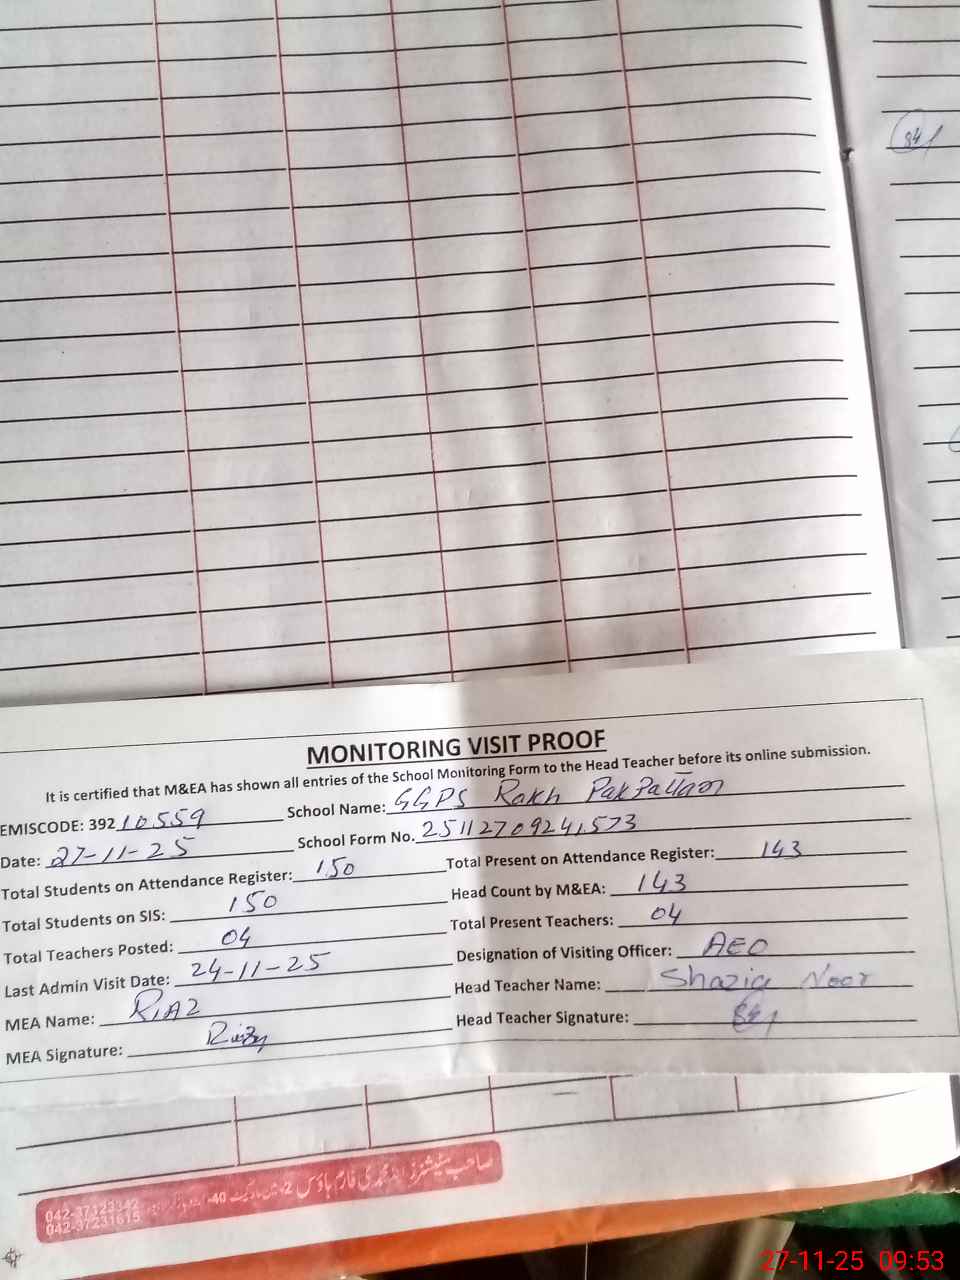 MONITORING VISIT PROOF
It is certified that M&EA has shown all entries of the School Monitoring Form to the Head Teacher before its online submission.
EMISCODE: 39210559 School Name: GGPS Rakh PakPattan
Date: 27-11-25 School Form No. 25112709241573
Total Students on Attendance Register: 150 Total Present on Attendance Register: 143
Total Students on SIS: 150 Head Count by M&EA: 143
Total Teachers Posted: 04 Total Present Teachers: 04
Last Admin Visit Date: 24-11-25 Designation of Visiting Officer: AEO
MEA Name: RIAZ Head Teacher Name: Shazia Noor
MEA Signature: Head Teacher Signature:
042-37323342
042-37231615
27-11-25 09:53